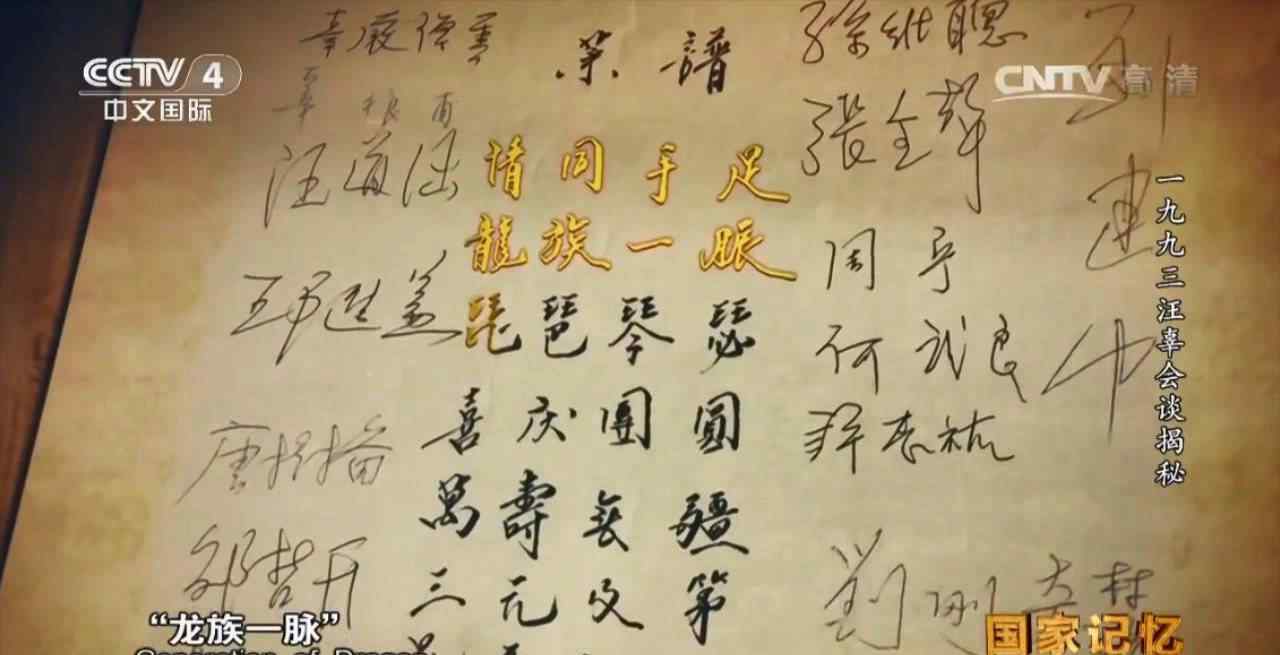 CCTV 4
中文国际
CNTV高清
菜譜
情同手足
龍族一脈
琵琶琴瑟
喜庆團圓
萬壽無疆
三元及第
辜嚴倬雲
辜振甫
汪道涵
邱进益
唐树备
邹哲开
周宁
何武良
許惠祐
刘建中
一九九三汪辜会谈揭秘
“龙族一脉”
国家记忆